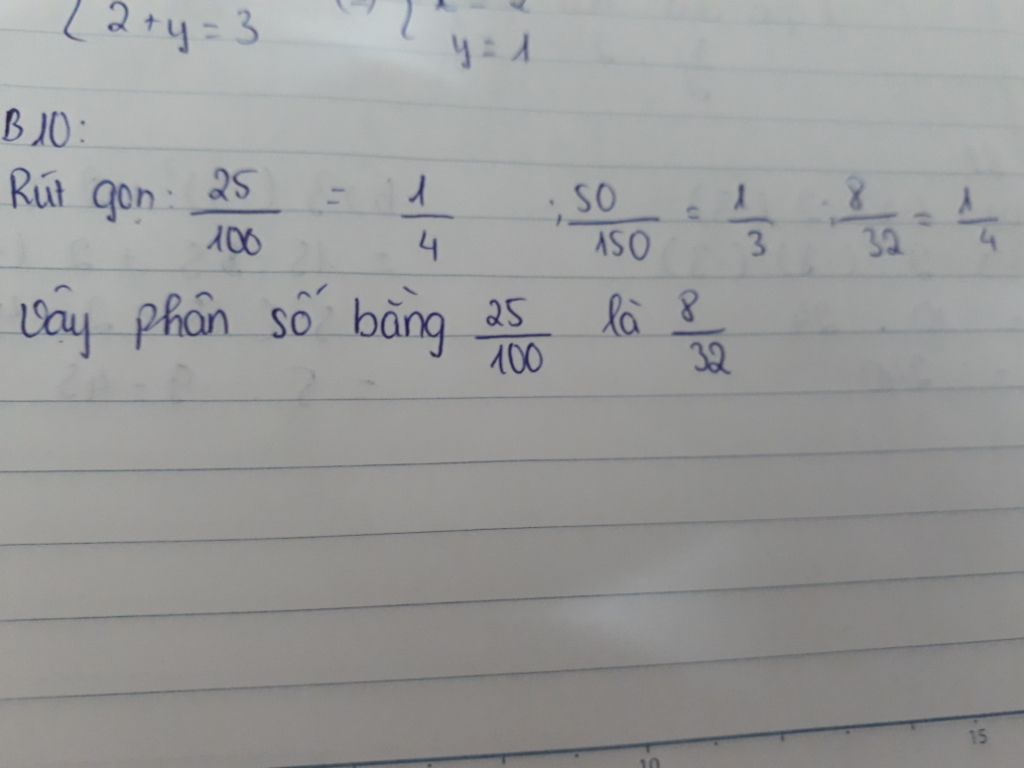 { 2 + y = 3 { y = 1
B10:
Rút gọn: 25/100 = 1/4 ; 50/150 = 1/3 ; 8/32 = 1/4
Vậy phân số bằng 25/100 là 8/32
10 15